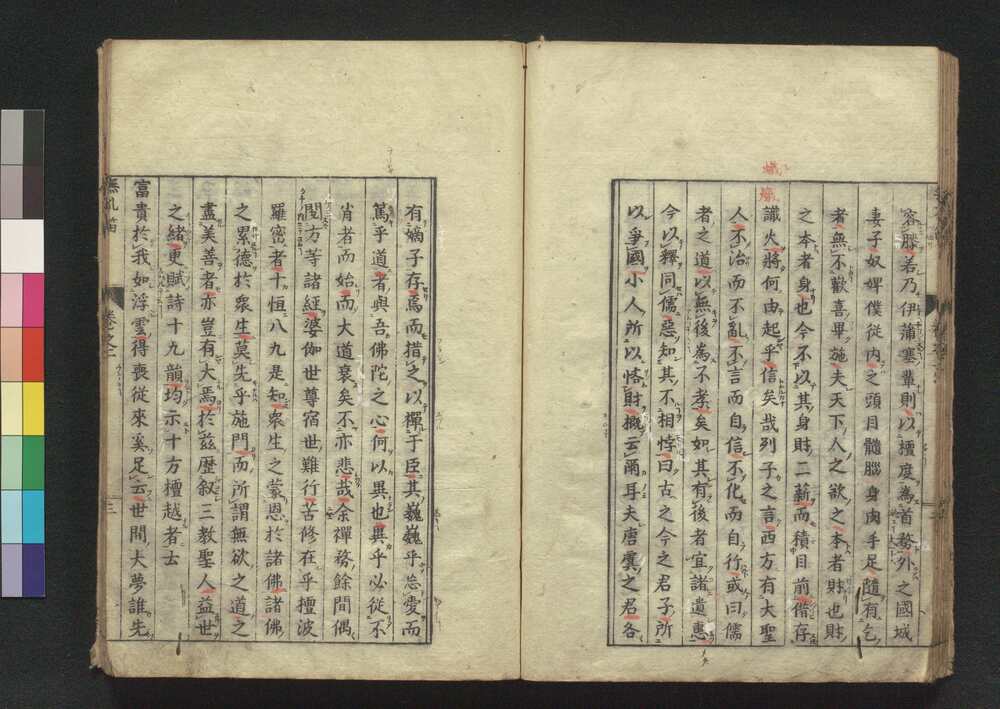 容勝若乃伊蒲塞輩則以壇度為首務外之國城
妻子奴婢僕從内之頭目髓腦身肉手足隨有乞
者無不歡喜畢施夫天下人之欲之本者財也財
之本者身也今不以其身財二薪而積目前偺存
識火將何由起乎信矣哉列子之言西方有大聖
人不治而不亂不言而自信不化而自行或曰儒
者之道以無後為不孝矣如其有後者宜諸遺惠
今以釋同儒惡知其不相悖曰古之今之君子所
以爭國小人所以悋財概云爾耳夫唐虞之君各
有嫡子存焉而措之以禪于臣其巍巍乎忘愛而
篤乎道者與吾佛陀之心何以異也與乎必從不
肖者而始而大道衰矣不亦悲哉余禪務餘間偶
閲方等諸經婆伽世尊宿世難行苦修在乎檀波
羅密者十恒八九是知衆生之蒙恩於諸佛諸佛
之累德於衆生莫先乎施門而所謂無欲之道之
盡美善者亦豈有大焉於茲歷叙三教聖人益世
之緒更賦詩十九韻均示十方檀越者士
富貴於我如浮雲得喪從來奚足云世間大夢誰先
無孔笛
卷之二
三